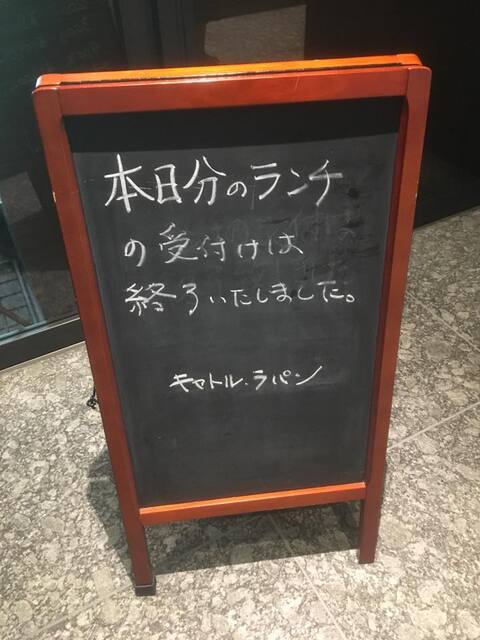 本日分のランチ
の受付けは
終了いたしました。
キャトル・ラパン